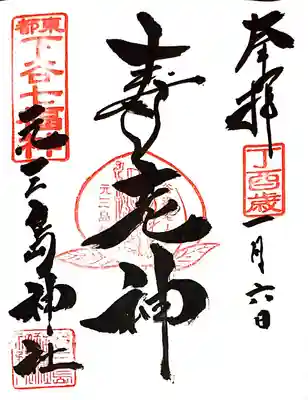 奉拝
丁酉歳
一月六日
寿老神
元三島
東都
下谷七福神
元三島神社